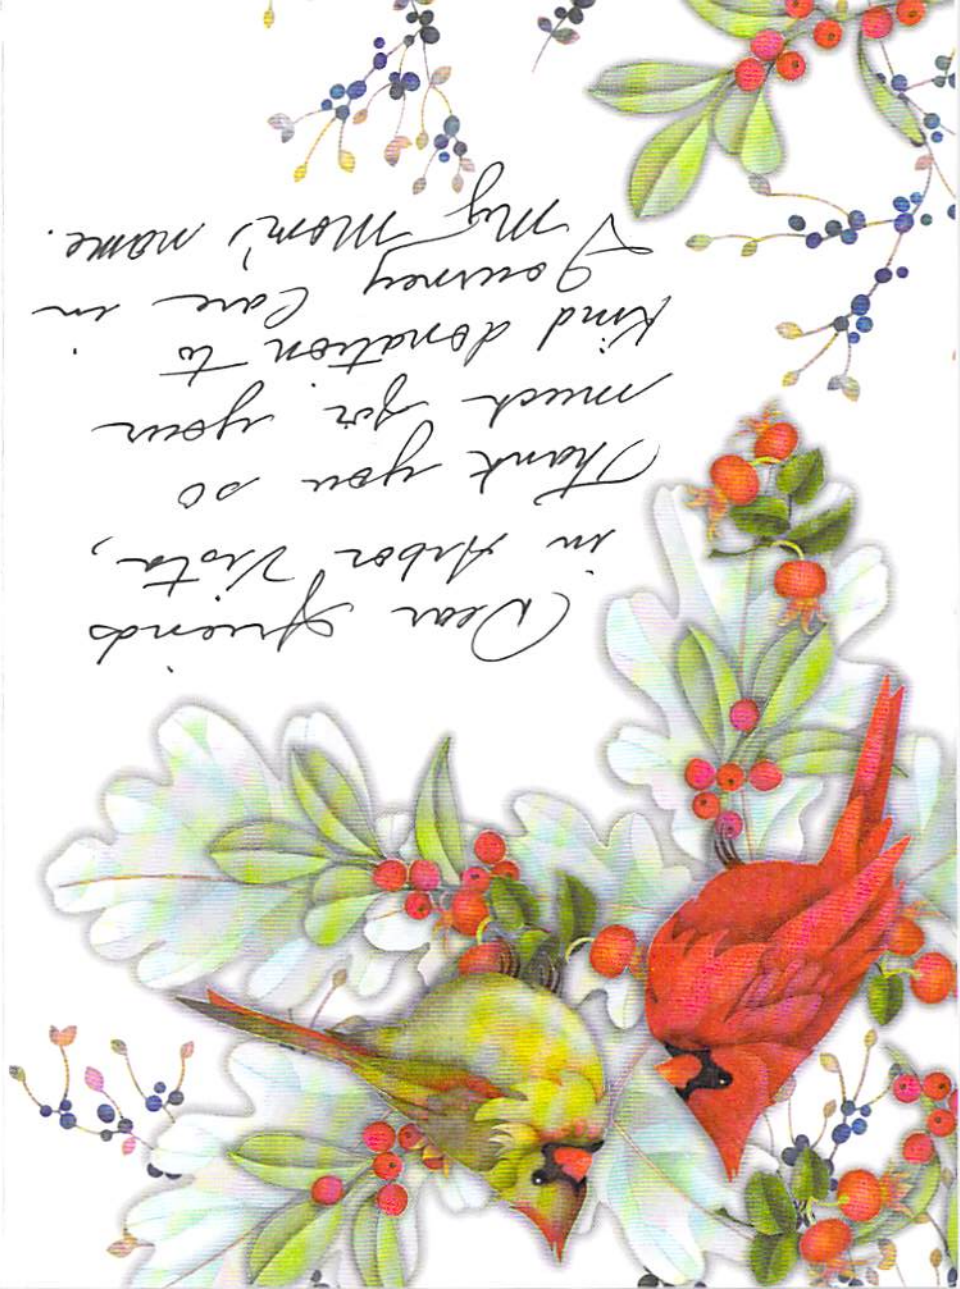 Dear friends
in Arbor Vista,
Thank you so
much for your
kind donation to
Journey Care in
My Mom's name.